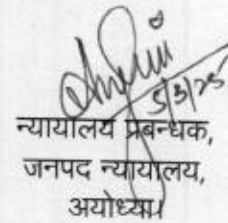 5/3/25
न्यायालय प्रबन्धक,
जनपद न्यायालय,
अयोध्या।